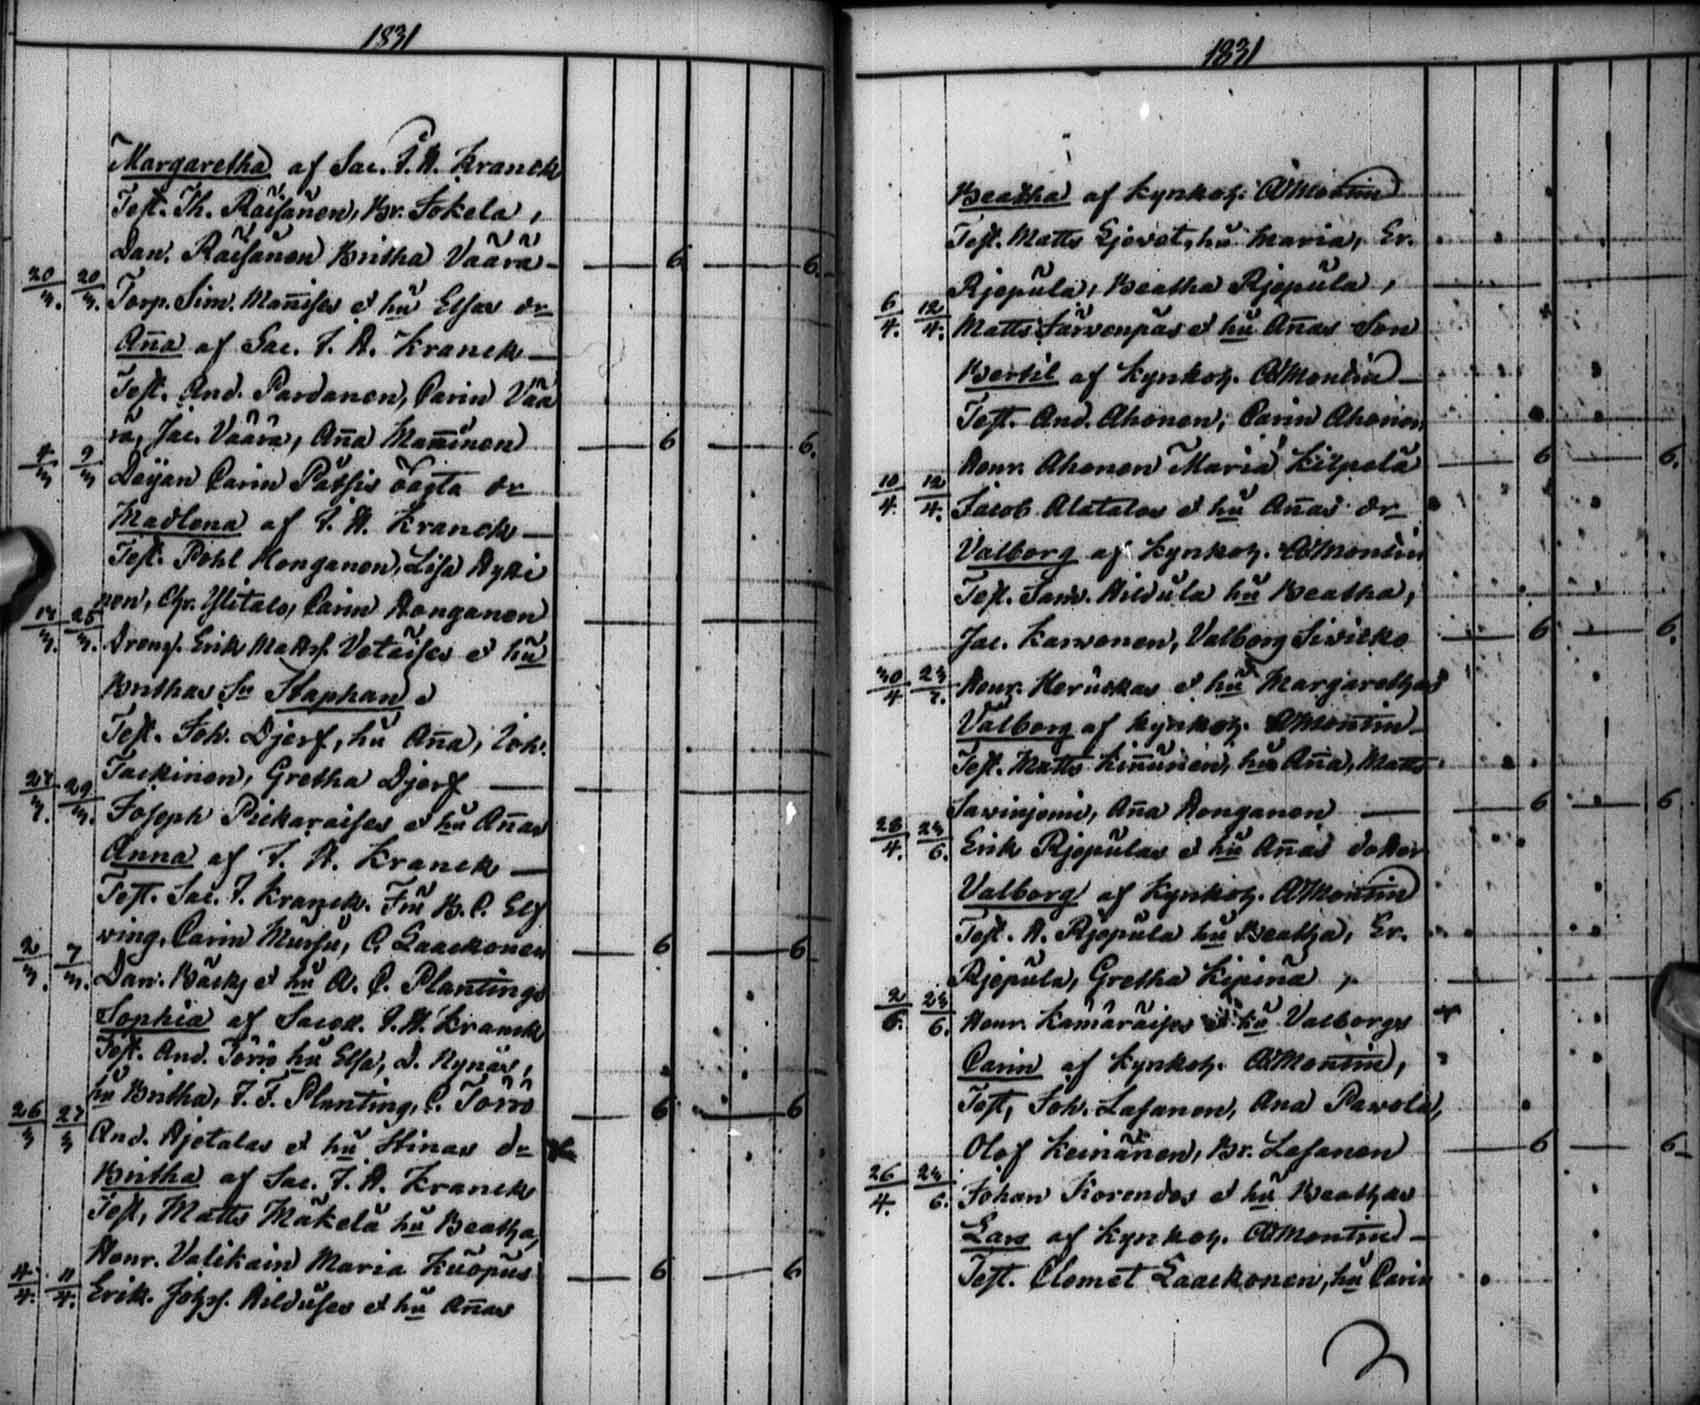 1831
Margaretha af Sac. J. H. Kranck
Test. Th. Räisänen, Br. Jokela,
Dan. Räisänen Britha Väärä — 6 — 6
20/3. 20/3. Torp. Sim. Mañises et hŭ Elsas dr
Aña af Sac. J. H. Kranck —
Test. And. Pardanen, Carin Vää
rä, Jac. Väärä, Aña Mañinen — 6 — 6.
Deijan Carin Patsis oägta dr
Madlena af J. H. Kranck —
Test. Pohl Honganen, Lisa Hyki
nen, Chr. Ylitalo, Carin Honganen
Dreng. Erik Matts. Vetäises et hŭ
Brithas Sn Staphan
Test. Joh. Djerf, hŭ Aña, Joh.
Tackinen, Gretha Djerf —
27/3. 29/3. Joseph Pickaraises et hŭ Añas
Anna af J. H. Kranck —
Test. Sac. J. Kranck. Frŭ B. C. Elf
ving, Carin Mursu, C. Laackonen — 6 — 6
2/3. 7/3. Dan. Bäcks et hŭ A. C. Plantings
Sophia af Sacell. J. H. Kranck
Test. And. Törrö hŭ Elsa, D. Nynäs,
hŭ Britha, J. F. Planting, C. Törrö — 6 — 6
26/3 27/3 And. Ajetalas et hŭ Stinas dr
Britha af Sac. J. H. Kranck
Test, Matts Mäkelä hŭ Beatha,
Henr. Valikain Maria Kuopus — 6 — 6
4/4. 11/4. Erik. Johs. Hilduses et hŭ Añas
1831
Beatha af Kyrkoh. A Montin
Test. Matts Ljevet, hŭ Maria, Er.
Rjepŭla, Beatha Rjepŭla,
6/4. 12/4. Matts Järvenpäs et hŭ Añas Son
Bertil af Kyrkoh. A Montin —
Test. And. Ahonen, Carin Ahonen,
Henr. Ahonen Maria Kilpelä — 6 — 6.
10/4. 12/4. Jacob Alatalos et hŭ Añas dr
Valborg af Kyrkoh. A Montin
Test. Sam. Hildula hŭ Beatha,
Jac. Karvonen, Valborg Sivilko — 6 — 6.
Henr. Heruskas et hŭ Margarethas
Valborg af Kyrkoh. A Montin —
Test. Matts Kiñunen, hŭ Aña, Matts
Savinjemi, Aña Honganen — 6 — 6
28/4. 23/6. Erik Rjepŭlas et hŭ Añas dotter
Valborg af Kyrkoh. A Montin
Test. H. Rjepŭla hŭ Beatha, Er.
Rjepŭla, Gretha Kipinä,
2/6. 23/6. Henr. Kämäräises et hŭ Valborgs
Carin af Kyrkoh. A Montin,
Test, Joh. Lasanen, Ana Pavola,
Olof Keinänen, Br. Lasanen — 6 — 6
26/4. 23/6. Johan Korendos et hŭ Beathas
Lars af Kyrkoh. A Montin —
Test. Clemet Laackonen, hŭ Carin